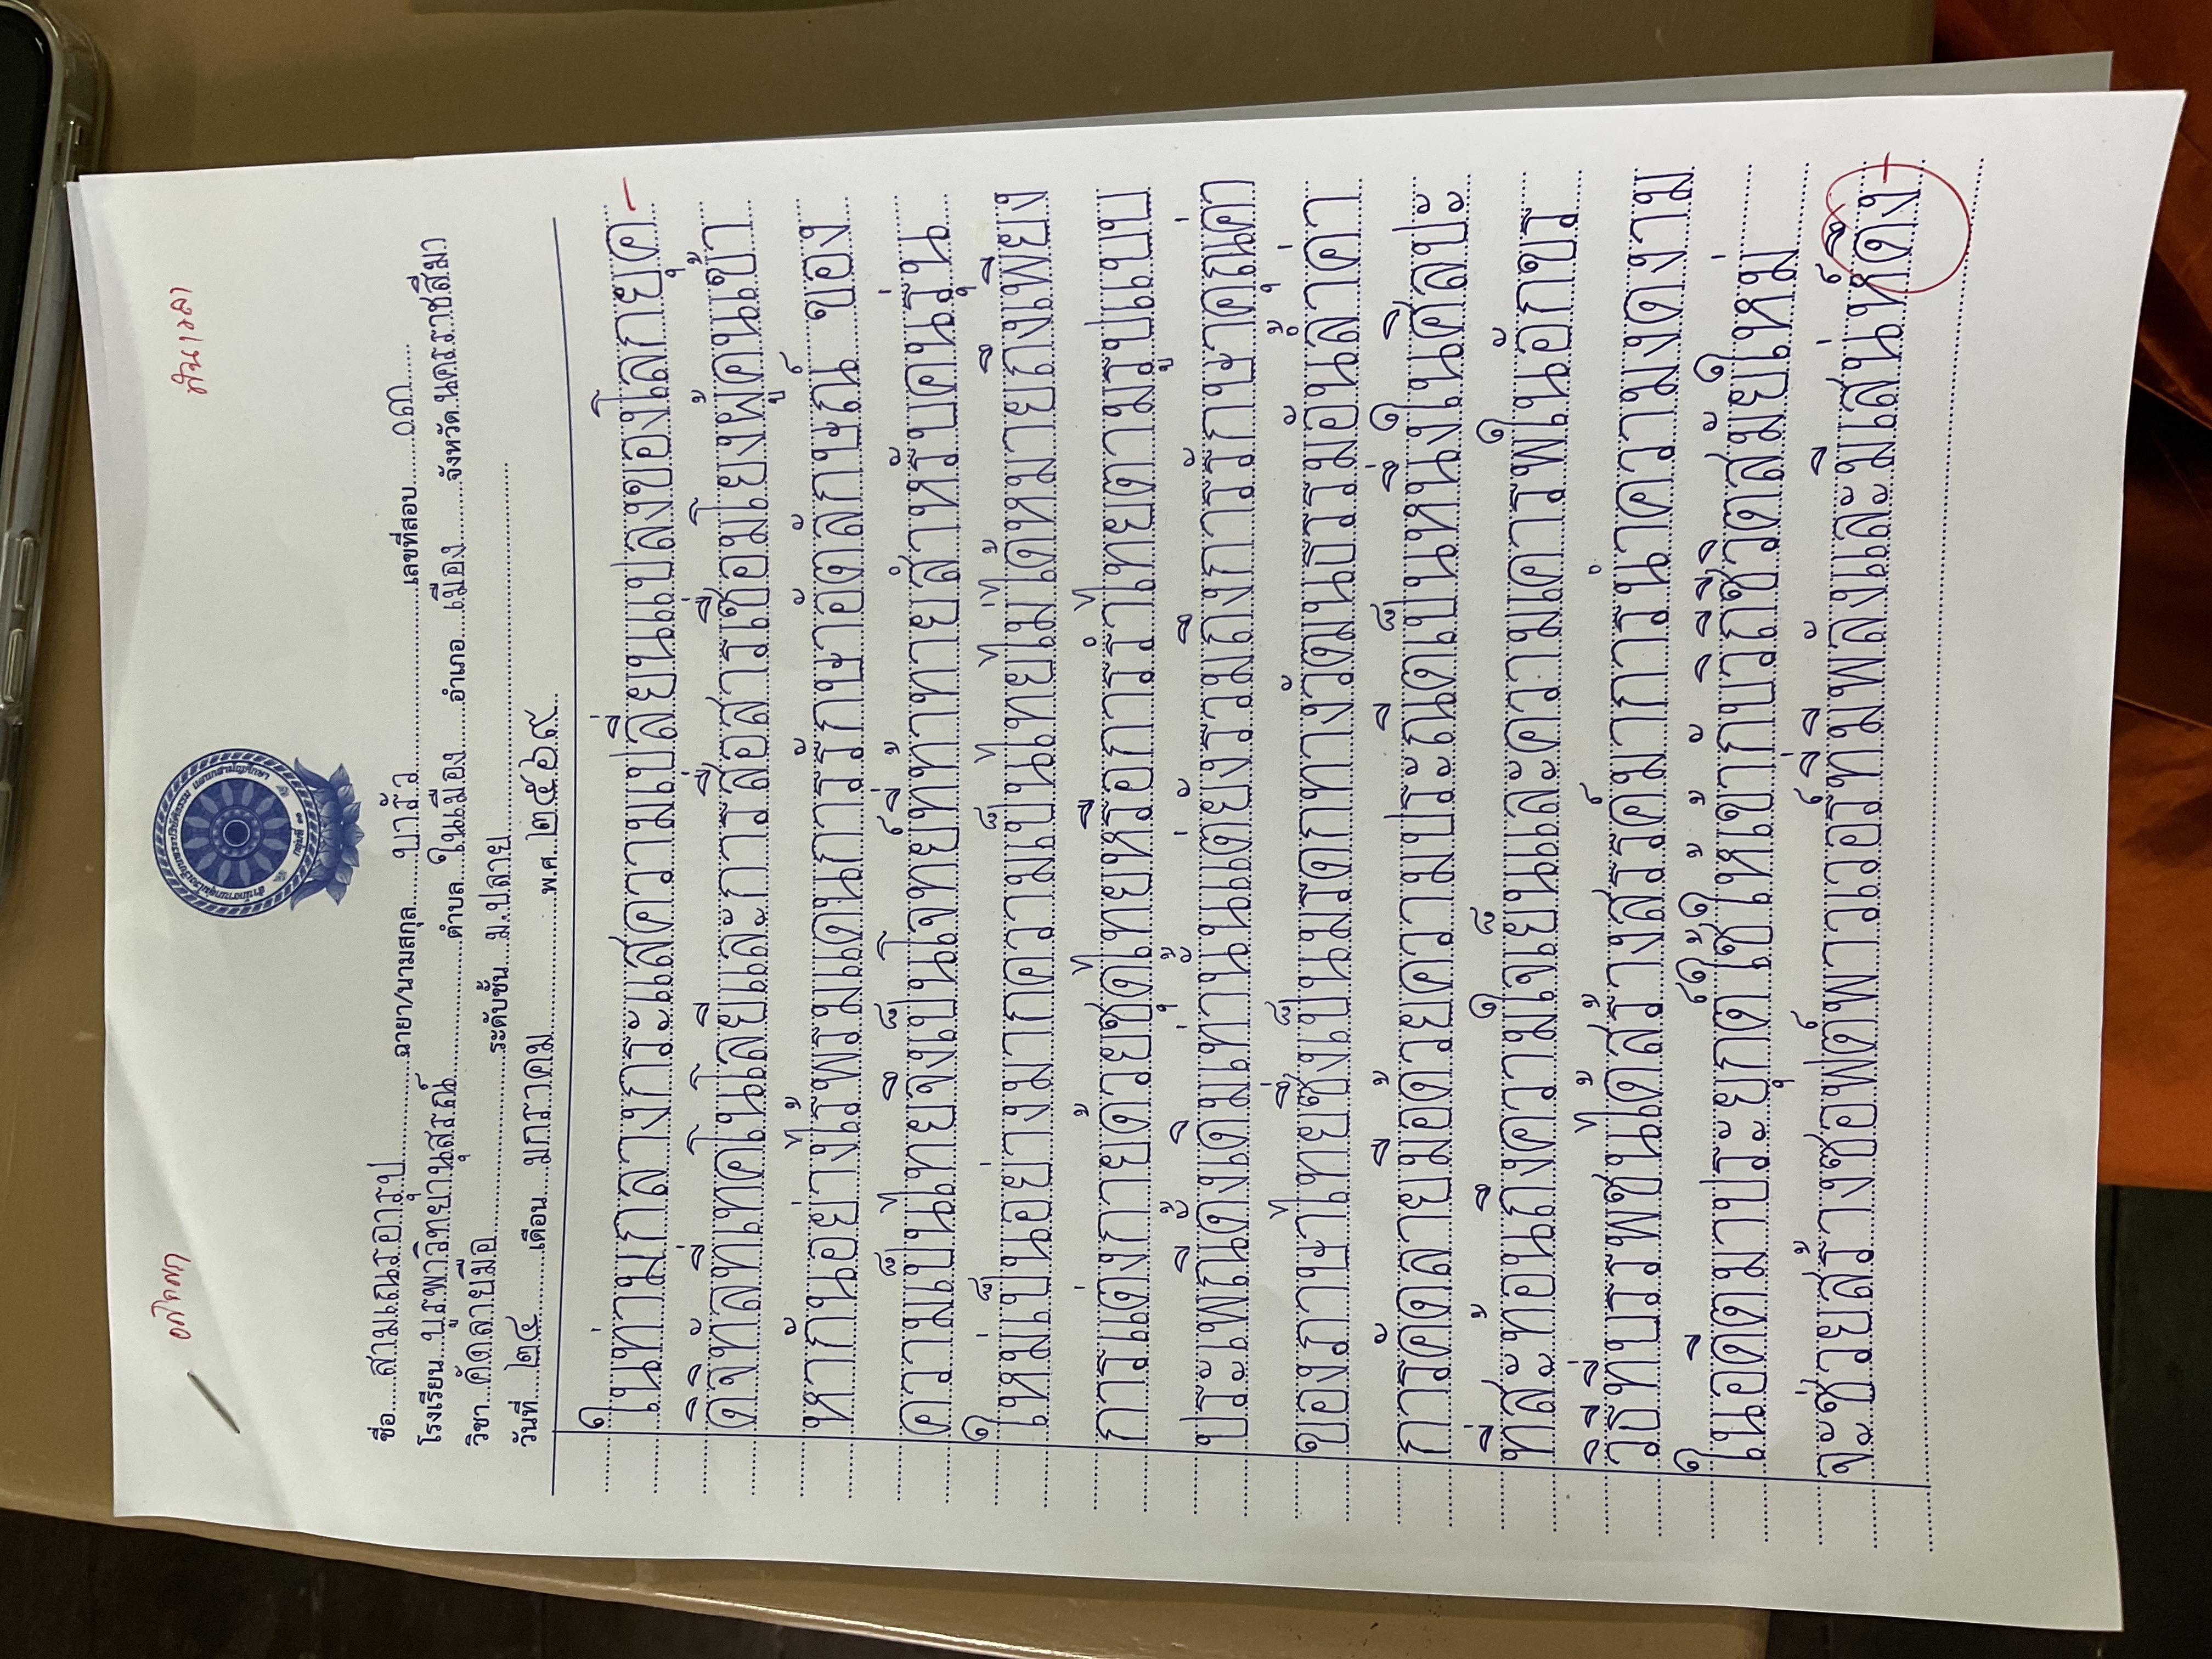 ทันเวลา
สำนักงานกลุ่มโรงเรียนพระปริยัติธรรม แผนกสามัญศึกษา
ชื่อ....สามเณรอารุป..........ฉายา/นามสกุล......บารัว..........เลขที่สอบ.......๐๓.......
โรงเรียน...บูรพาวิทยานุสรณ์..........ตำบล..ในเมือง......อำเภอ...เมือง.......จังหวัด.นครราชสีมา
วิชา...คัดลายมือ..........ระดับชั้น...ม.ปลาย..........
วันที่....๒๔..........เดือน....มกราคม..........พ.ศ..๒๕๖๙..
ในท่ามกลางกระแสความเปลี่ยนแปลงของโลกยุค-
ดิจิทัลที่เทคโนโลยีและการสื่อสารเชื่อมโยงผู้คนเข้า
หากันอย่างไร้พรมแดนการรักษาอัตลักษณ์ ของ
ความเป็นไทยจึงเป็นโจทย์ที่ท้าทายสำหรับคนรุ่น
ใหม่เป็นอย่างมากความเป็นไทยไม่ได้หมายถึงเพียง
การแต่งกายด้วยชุดไทยหรือการรำไทยตามรูปแบบ
ประเพณีดั้งเดิมเท่านั้นแต่ยังรวมถึงการรักษาคุณค่า
ของภาษาไทยซึ่งเป็นมรดกทางวัฒนธรรมอันล้ำค่า
การคัดลายมือด้วยความประณีตเป็นหนึ่งในศิลปะ
ที่สะท้อนถึงความใจเย็นและความเคารพในอักขร
วิถีที่บรรพชนได้สร้างสรรค์มาการนำความงดงาม
ในอดีตมาประยุกต์ใช้ให้เข้ากับวิถีชีวิตสมัยใหม่
จะช่วยสร้างซอฟต์พาวเวอร์ที่มีพลังและมีเสน่ห์ดึง-